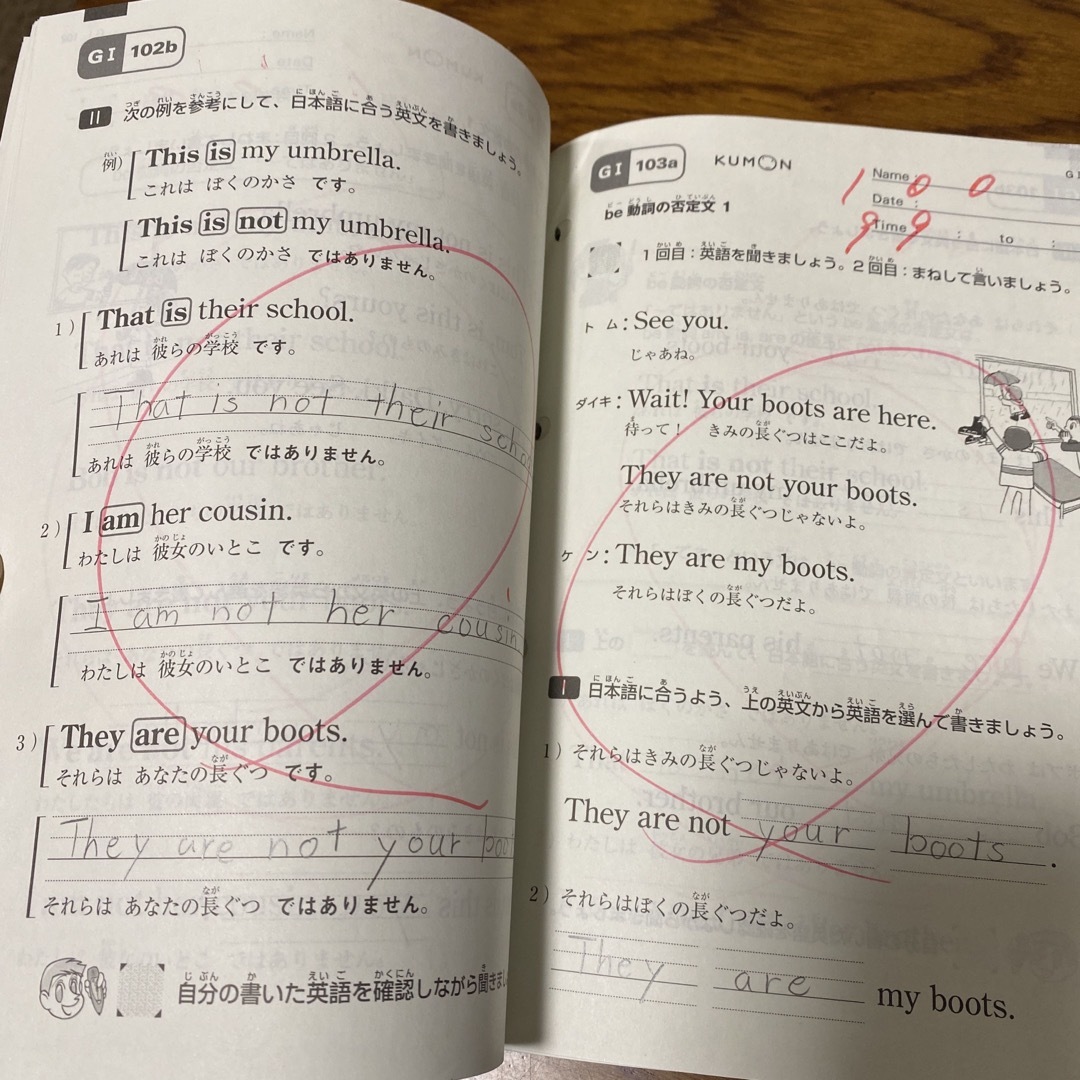 GI 102b
II 次の例を参考にして、日本語に合う英文を書きましょう。
例) This is my umbrella.
これは ぼくのかさ です。
This is not my umbrella.
これは ぼくのかさ ではありません。
1) That is their school.
あれは 彼らの学校 です。
That is not their
あれは 彼らの学校 ではありません。
2) I am her cousin.
わたしは 彼女のいとこ です。
I am not her cousin
わたしは 彼女のいとこ ではありません。
3) They are your boots.
それらは あなたの長ぐつ です。
They are not your
それらは あなたの長ぐつ ではありません。
自分の書いた英語を確認しながら聞きま
GI 103a KUMON
Name :
100
Date :
Time : to :
99
be動詞の否定文 1
1回目:英語を聞きましょう。2回目:まねして言いましょう。
トム : See you.
じゃあね。
ダイキ : Wait! Your boots are here.
待って! きみの長ぐつはここだよ。
They are not your boots.
それらはきみの長ぐつじゃないよ。
ケン : They are my boots.
それらはぼくの長ぐつだよ。
I 日本語に合うよう、上の英文から英語を選んで書きましょう。
1) それらはきみの長ぐつじゃないよ。
They are not your boots .
2) それらはぼくの長ぐつだよ。
They are my boots.